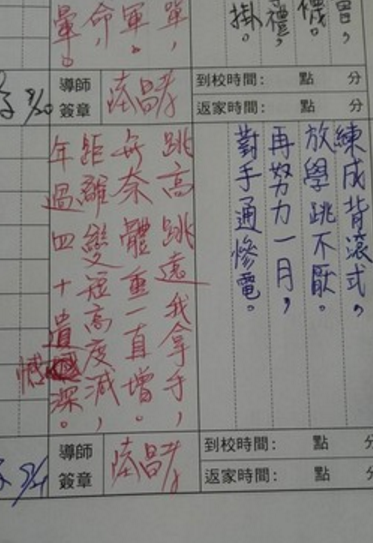 冒，
襪。
禮，
掛。
單，
軍。
命，
暈。
導師
簽章
到校時間： 點 分
返家時間： 點 分
練成背滾式，
放學跳不厭。
再努力一月，
對手通慘電。
跳高跳遠我拿手，
無奈體重一直增。
距離變短高度減，
年過四十遺憾深。
導師
簽章
到校時間： 點 分
返家時間： 點 分